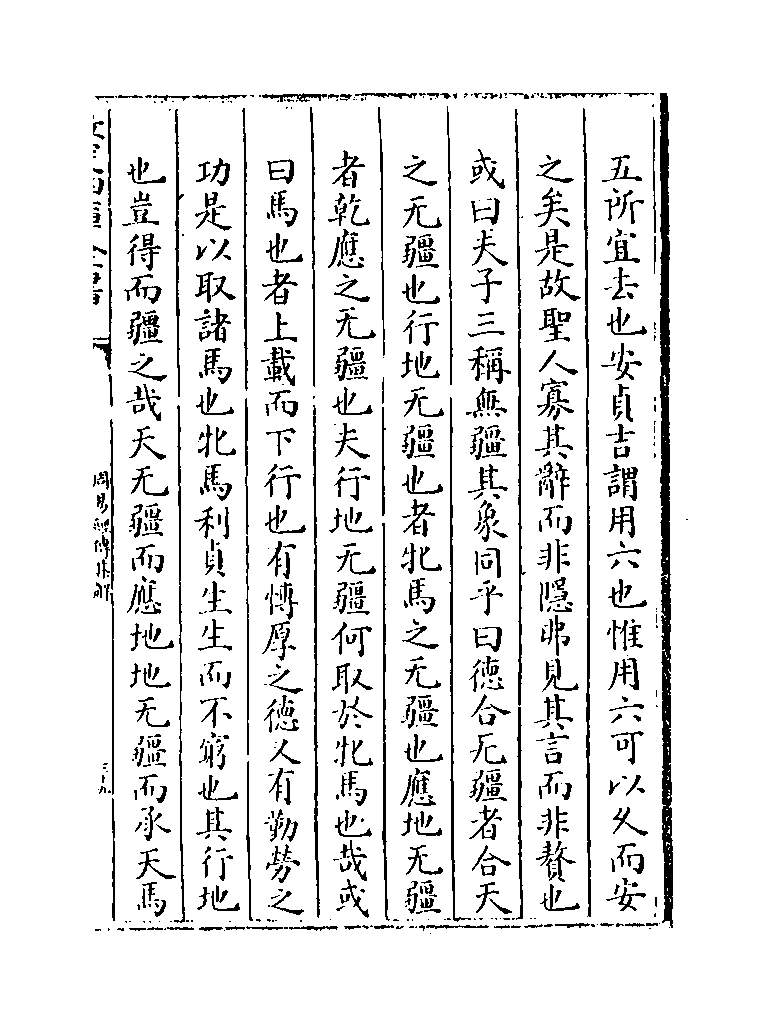 五所宜去也安貞吉謂用六也惟用六可以久而安
之矣是故聖人寡其辭而非隱帰見其言而非贅也
或曰夫子三稱無疆其象同乎曰德合无疆者合天
之无疆也行地无疆也者牝馬之无疆也應地无疆
者乾應之无疆也夫行地无疆何取於牝馬也哉或
曰馬也者上載而下行也有慱厚之德又有勤勞之
功是以取諸馬也牝馬利貞生生而不窮也其行地
也豈得而疆之哉天无疆而應地地无疆而承天馬
欽定四庫全書
周易經傳集解
三十九